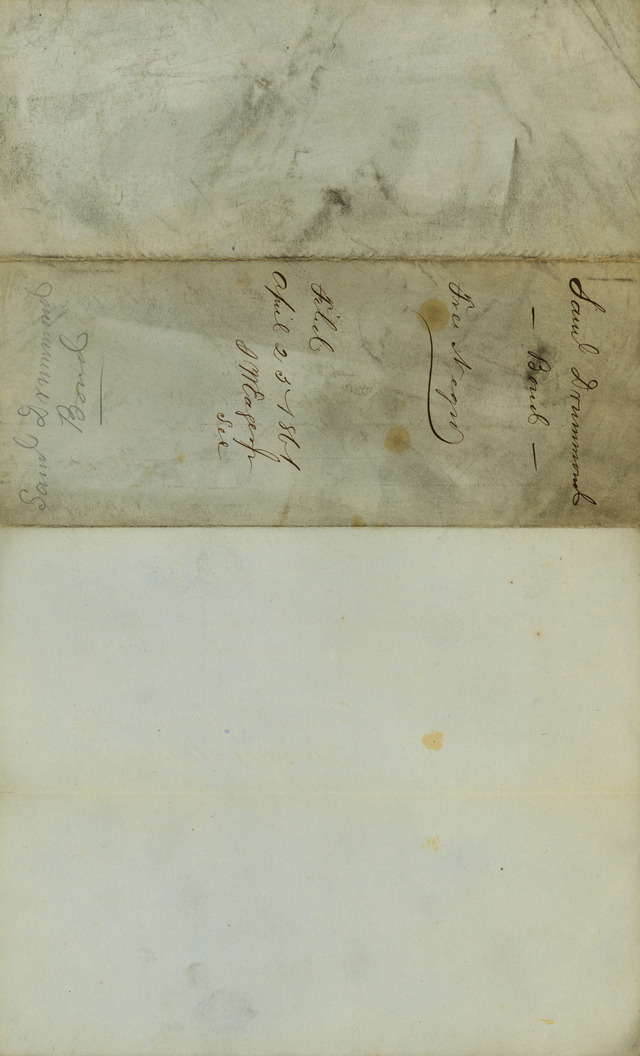 Saml Drummond
— Bond —
Free Negro
Filed
April 25 1861
Sec
Saml Drummond
Bond